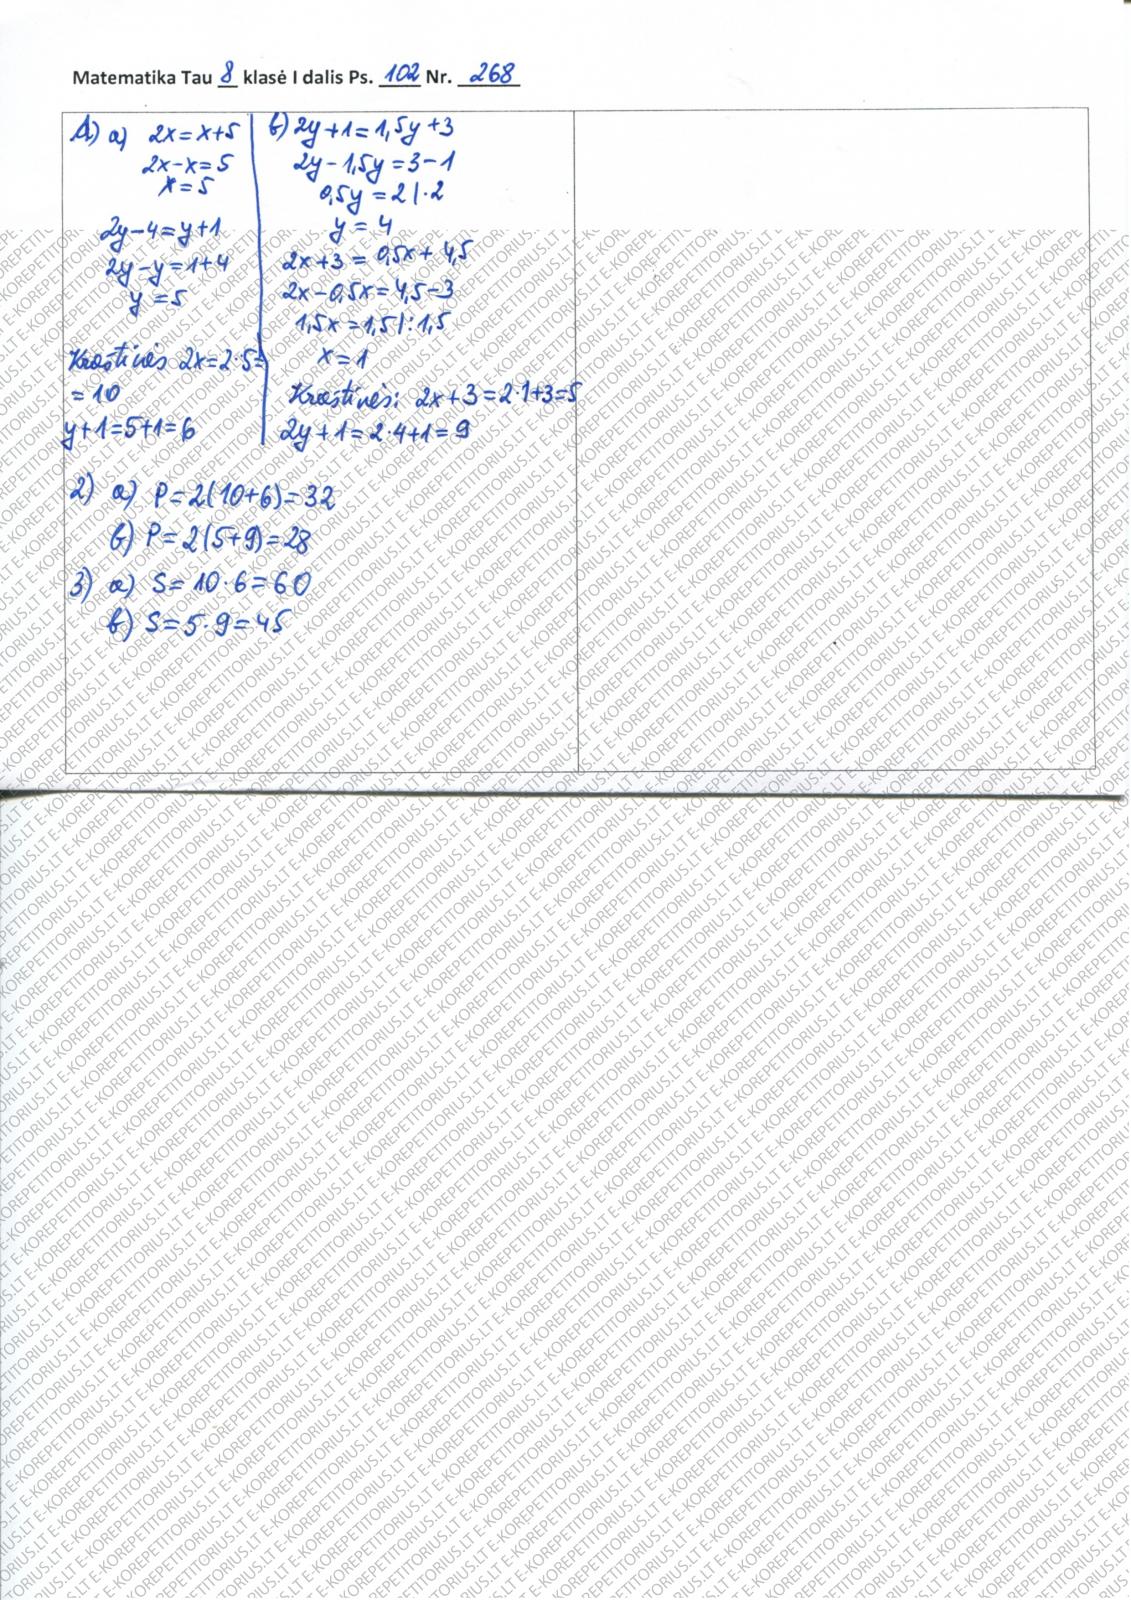 Matematika Tau 8 klasė I dalis Ps. 102 Nr. 268
1) a) 2x=x+5
2x-x=5
x=5
2y-4=y+1
2y-y=1+4
y=5
Kraštinės 2x=2·5=
=10
y+1=5+1=6
b) 2y+1=1,5y+3
2y-1,5y=3-1
0,5y=2 |·2
y=4
2x+3=0,5x+4,5
2x-0,5x=4,5-3
1,5x=1,5 |:1,5
x=1
Kraštinės: 2x+3=2·1+3=5
2y+1=2·4+1=9
2) a) P=2(10+6)=32
b) P=2(5+9)=28
3) a) S=10·6=60
b) S=5·9=45
E-KOREPETITORIUS.LT